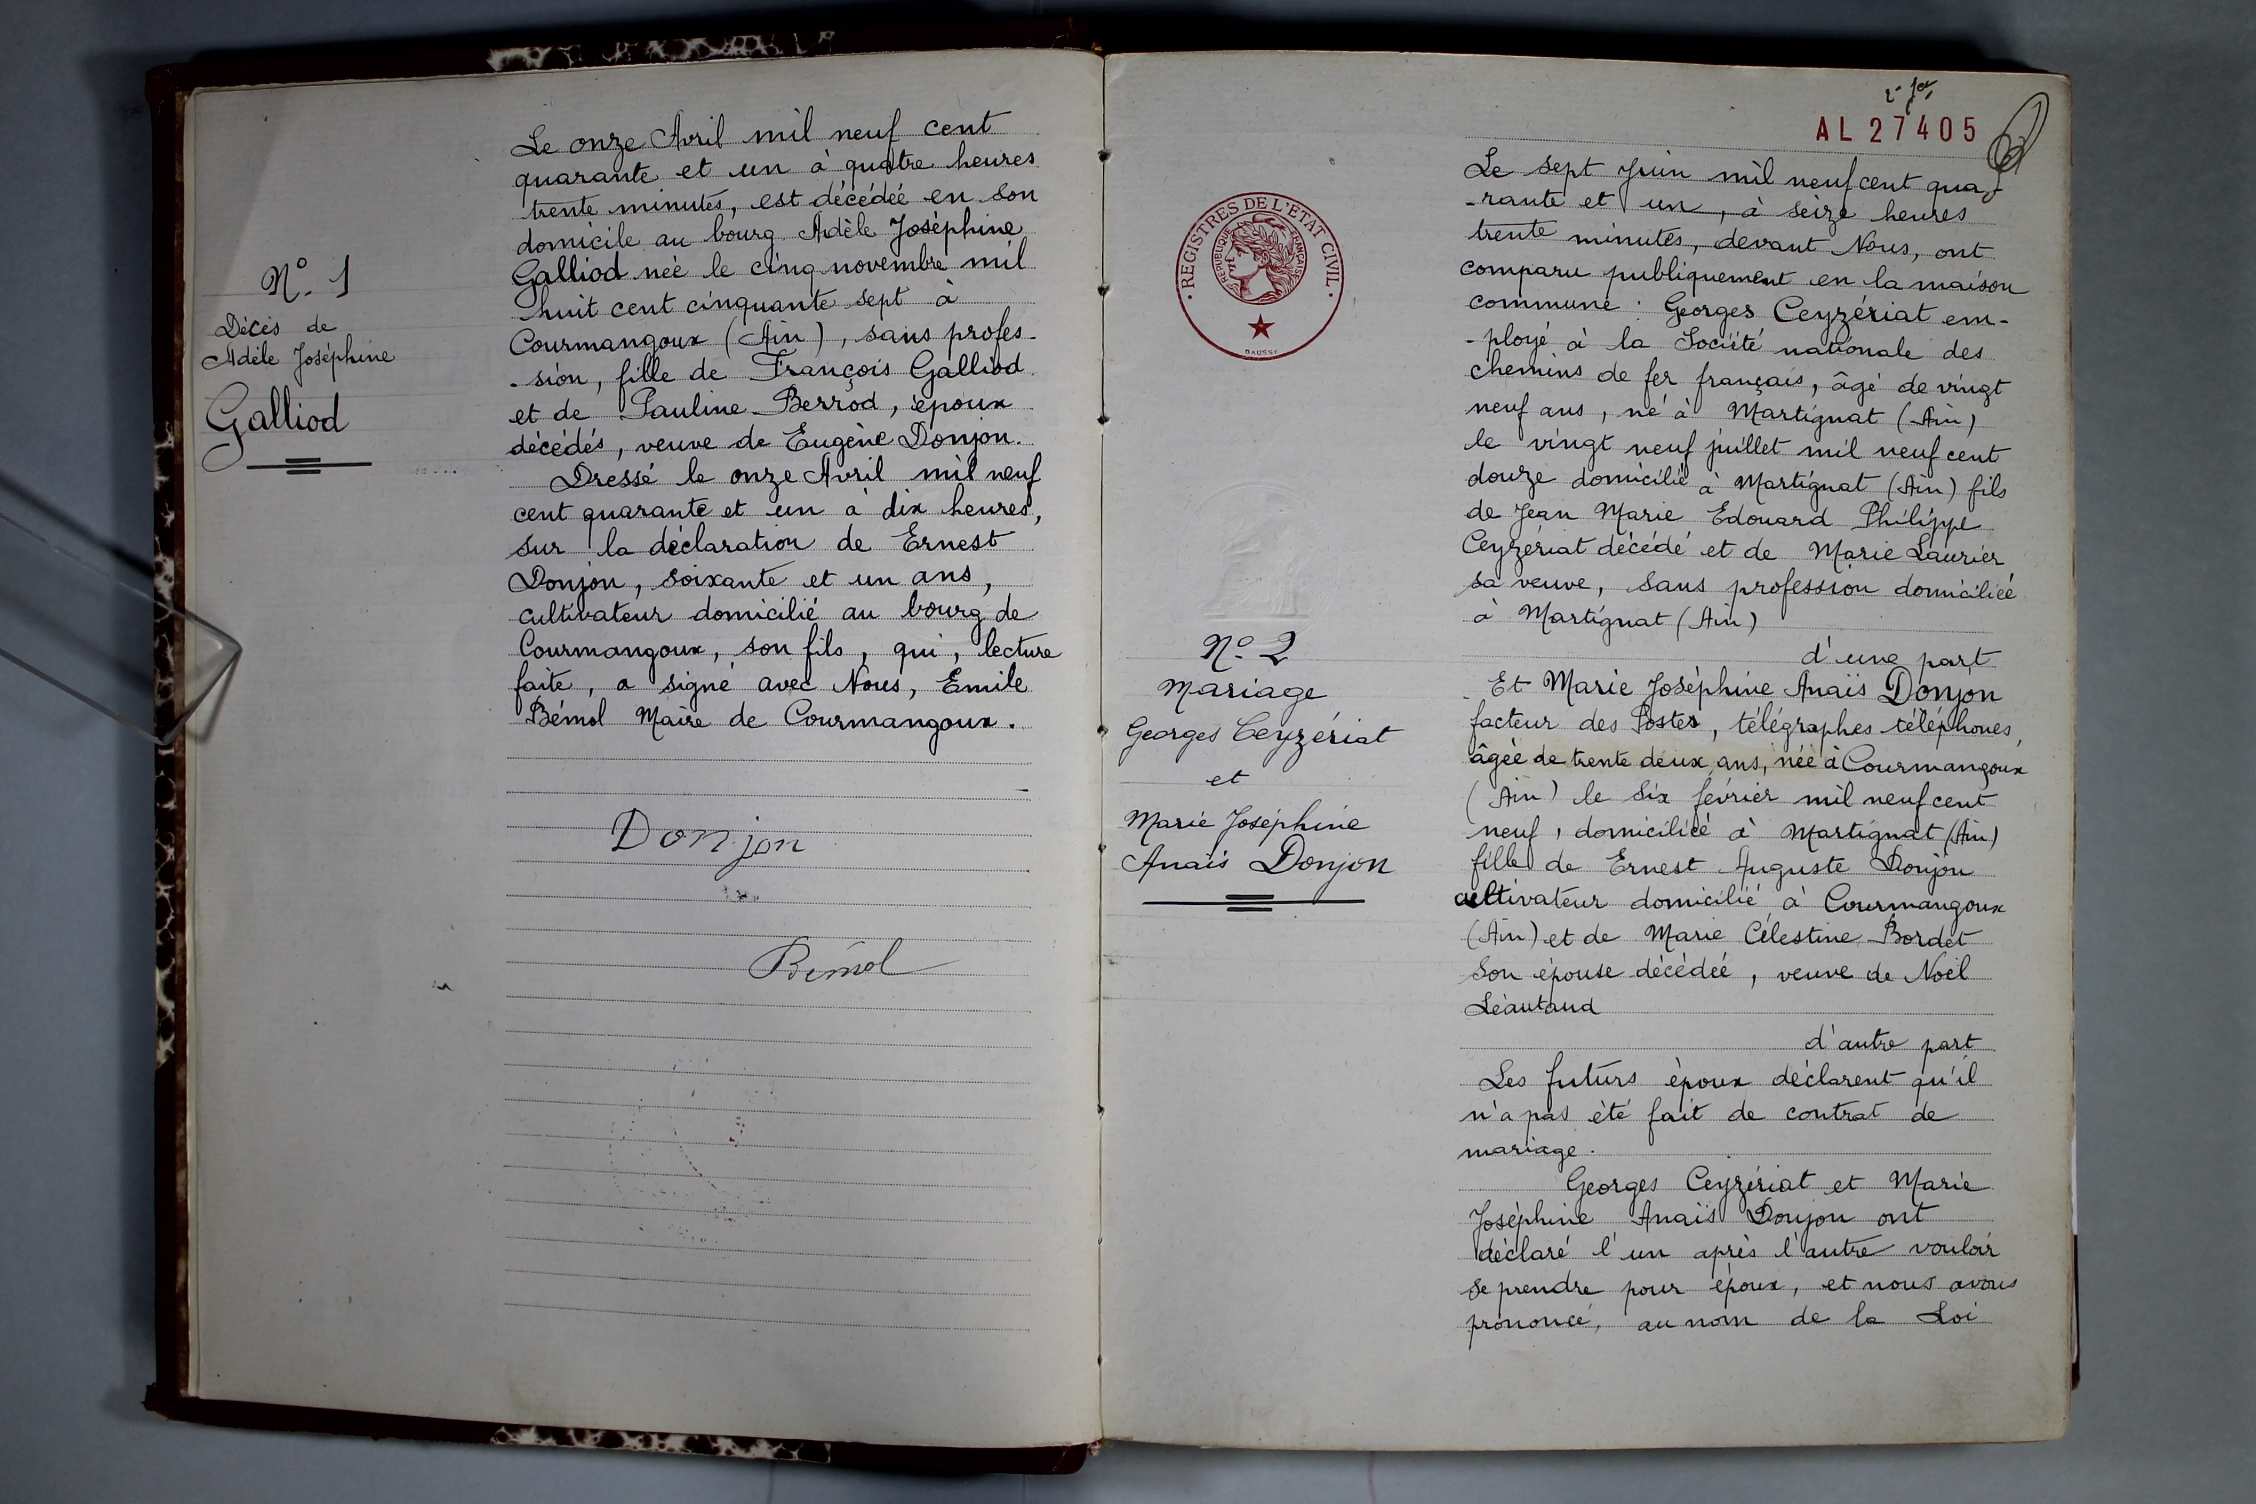 N°. 1
Décès de
Adèle Joséphine
Galliod
Le onze Avril mil neuf cent
quarante et un à quatre heures
trente minutes, est décédée en son
domicile au bourg Adèle Joséphine
Galliod née le cinq novembre mil
huit cent cinquante sept à
Courmangoux (Ain), sans profes-
-sion, fille de François Galliod
et de Pauline Berrod, époux
décédés, veuve de Eugène Donjon.
Dressé le onze Avril mil neuf
cent quarante et un à dix heures,
sur la déclaration de Ernest
Donjon, soixante et un ans,
cultivateur domicilié au bourg de
Courmangoux, son fils, qui, lecture
faite, a signé avec Nous, Emile
Bémol Maire de Courmangoux.
Donjon
Bémol
AL 27405
REGISTRES DE L'ÉTAT CIVIL
RÉPUBLIQUE FRANÇAISE
N°. 2
Mariage
Georges Ceyzériat
et
Marie Joséphine
Anaïs Donjon
Le sept Juin mil neuf cent qua-
-rante et un, à seize heures
trente minutes, devant Nous, ont
comparu publiquement en la maison
commune : Georges Ceyzériat em-
-ployé à la Société nationale des
chemins de fer français, âgé de vingt
neuf ans, né à Martignat (Ain)
le vingt neuf juillet mil neuf cent
douze domicilié à Martignat (Ain) fils
de Jean Marie Edouard Philippe
Ceyzériat décédé et de Marie Laurier
sa veuve, sans profession domiciliée
à Martignat (Ain)
d'une part
Et Marie Joséphine Anaïs Donjon
facteur des Postes, télégraphes téléphones,
âgée de trente deux ans, née à Courmangoux
(Ain) le six février mil neuf cent
neuf, domiciliée à Martignat (Ain)
fille de Ernest Auguste Donjon
cultivateur domicilié à Courmangoux
(Ain) et de Marie Célestine Bordet
son épouse décédée, veuve de Noël
Léautaud
d'autre part
Les futurs époux déclarent qu'il
n'a pas été fait de contrat de
mariage.
Georges Ceyzériat et Marie
Joséphine Anaïs Donjon ont
déclaré l'un après l'autre vouloir
se prendre pour époux, et nous avons
prononcé, au nom de la Loi